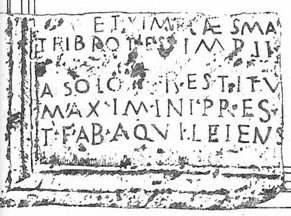 ET·IMP·CÆSMA
TRIB·POTES IMP·II
A SOLO RESTITV
MAXIMINI·PR·ES·
T·FAB·AQVILEIENS